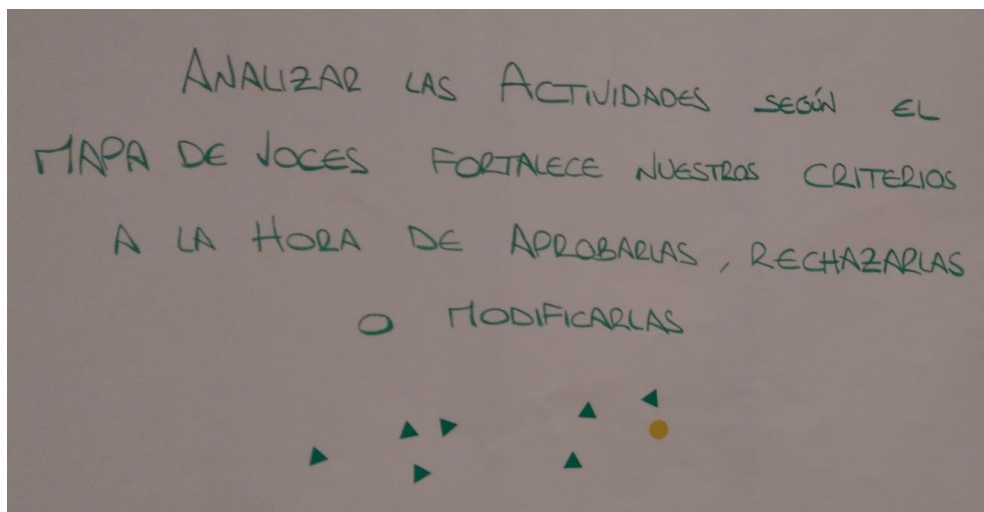 ANALIZAR LAS ACTIVIDADES SEGÚN EL
MAPA DE VOCES FORTALECE NUESTROS CRITERIOS
A LA HORA DE APROBARLAS, RECHAZARLAS
O MODIFICARLAS